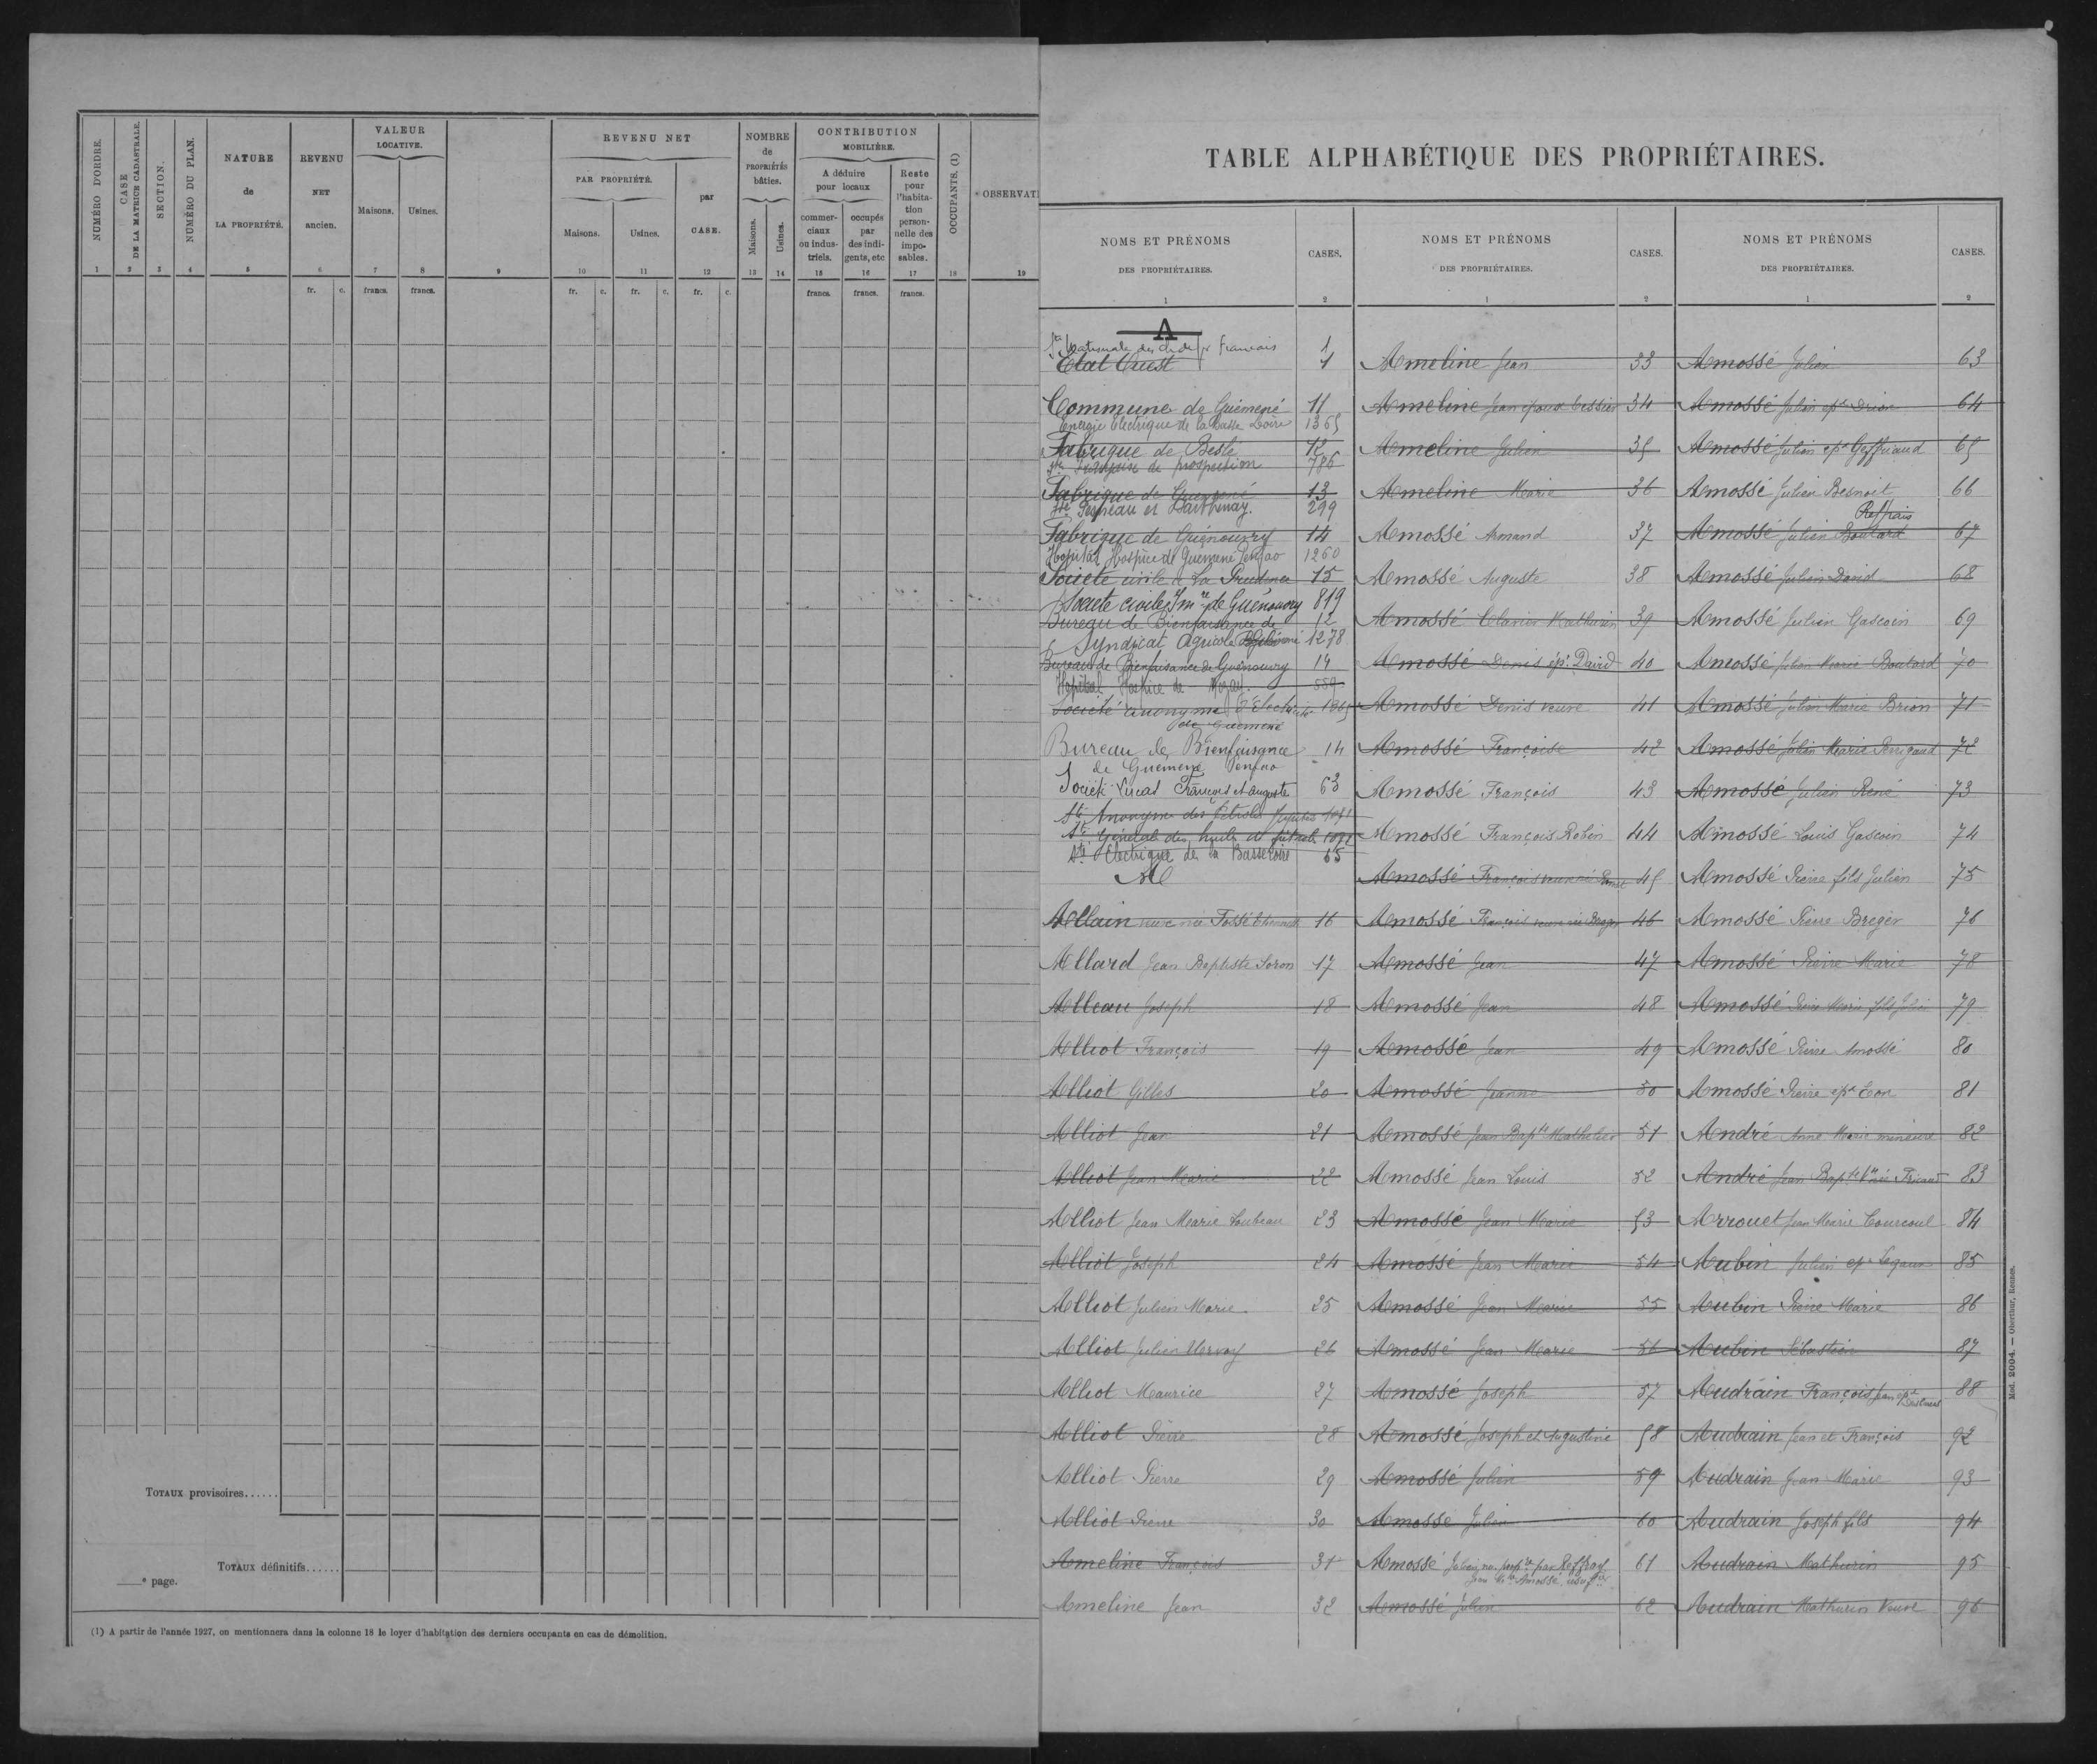 NUMÉRO D'ORDRE.
CASE DE LA MATRICE CADASTRALE.
SECTION.
NUMÉRO DU PLAN.
NATURE de LA PROPRIÉTÉ.
REVENU NET ancien.
VALEUR LOCATIVE.
Maisons. Usines.
REVENU NET
PAR PROPRIÉTÉ.
Maisons. Usines.
par CASE.
NOMBRE de PROPRIÉTÉS bâties.
Maisons. Usines.
CONTRIBUTION MOBILIÈRE.
A déduire pour locaux
commerciaux ou industriels.
occupés par des indigents, etc
Reste pour l'habitation personnelle des imposables.
OCCUPANTS. (1)
OBSERVATI
1 2 3 4 5 6 7 8 9 10 11 12 13 14 15 16 17 18 19
fr. c. francs. francs. fr. c. fr. c. fr. c. francs. francs. francs.
TOTAUX provisoires......
TOTAUX définitifs......
e page.
(1) A partir de l'année 1927, on mentionnera dans la colonne 18 le loyer d'habitation des derniers occupants en cas de démolition.
TABLE ALPHABÉTIQUE DES PROPRIÉTAIRES.
NOMS ET PRÉNOMS DES PROPRIÉTAIRES. CASES.
1 2
A
Sté Nationale des ch de fr Francais 1
Etat Ouest 1
Commune de Guémené 11
Energie Electrique de la Basse Loire 1365
Fabrique de Beslé 12
Sté de prospection 786
Fabrique de Guémené 13
299
Fabrique de Guénouvry 14
Hopital Hospice de Guémené Penfao 1260
Societe civile de La Prudence 15
Societe civile Imre de Guénouvry 819
Bureau de Bienfaisance de 12
Syndicat Agricole 1278
Bureau de Bienfaisance de Guénouvry 14
Hopital Hospice de 559
Societé anonyme d'Electricité
de Guemené
Bureau de Bienfaisance 14
de Guémené Penfao
Société Lucas François et Auguste 63
Sté Anonyme des Pétroles
Sté Générale des huiles de pétrole
Sté Electrique de la Basse Loire 65
Al
Allain veuve née Fossé 16
Allard Jean Baptiste Soron 17
Alleau Joseph 18
Alliot François 19
Alliot Gilles 20
Alliot Jean 21
Alliot Jean Marie 22
Alliot Jean Marie Loubeau 23
Alliot Joseph 24
Alliot Julien Marie 25
Alliot Julien Hervoy 26
Alliot Maurice 27
Alliot Pierre 28
Alliot Pierre 29
Alliot Pierre 30
Ameline François 31
Ameline Jean 32
NOMS ET PRÉNOMS DES PROPRIÉTAIRES. CASES.
1 2
Ameline Jean 33
Ameline Jean époux Tessier 34
Ameline Julien 35
Ameline Marie 36
Amossé Armand 37
Amossé Auguste 38
Amossé Clavier Mathurin 39
Amossé Denis épx David 40
Amossé Denis veuve 41
Amossé Françoise 42
Amossé François 43
Amossé François Robin 44
Amossé François veuve née 45
Amossé François veuve née 46
Amossé Jean 47
Amossé Jean 48
Amossé Jean 49
Amossé Jeanne 50
Amossé Jean Bapte Mathelier 51
Amossé Jean Louis 52
Amossé Jean Marie 53
Amossé Jean Marie 54
Amossé Jean Marie 55
Amossé Jean Marie 56
Amossé Joseph 57
Amossé Joseph et Augustine 58
Amossé Julien 59
Amossé Julien 60
Amossé Julien 61
Amossé Julien 62
NOMS ET PRÉNOMS DES PROPRIÉTAIRES. CASES.
1 2
Amossé Julien 63
Amossé Julien epx Drion 64
Amossé Julien epx Geffriaud 65
Amossé Julien Besnoit 66
Reffrais
Amossé Julien Boutard 67
Amossé Julien David 68
Amossé Julien Gascoin 69
Amossé Julien Marie Boutard 70
Amossé Julien Marie Brion 71
Amossé Julien Marie Perrigaud 72
Amossé Julien René 73
Amossé Louis Gascoin 74
Amossé Pierre fils Julien 75
Amossé Pierre Breger 76
Amossé Pierre Marie 78
Amossé Pierre Marie fils Julien 79
Amossé Pierre Amossé 80
Amossé Pierre epx Leon 81
André Anne Marie mineure 82
André Jean Bapte Vve née Fricaud 83
Arrouet Jean Marie Courcoul 84
Aubin Julien epx Legaux 85
Aubin Pierre Marie 86
Aubin Sébastien 87
Audrain François Jean epx 88
Audrain Jean et François 92
Audrain Jean Marie 93
Audrain Joseph fils 94
Audrain Mathurin 95
Audrain Mathurin Veuve 96
Mod. 2004. — Oberthur, Rennes.